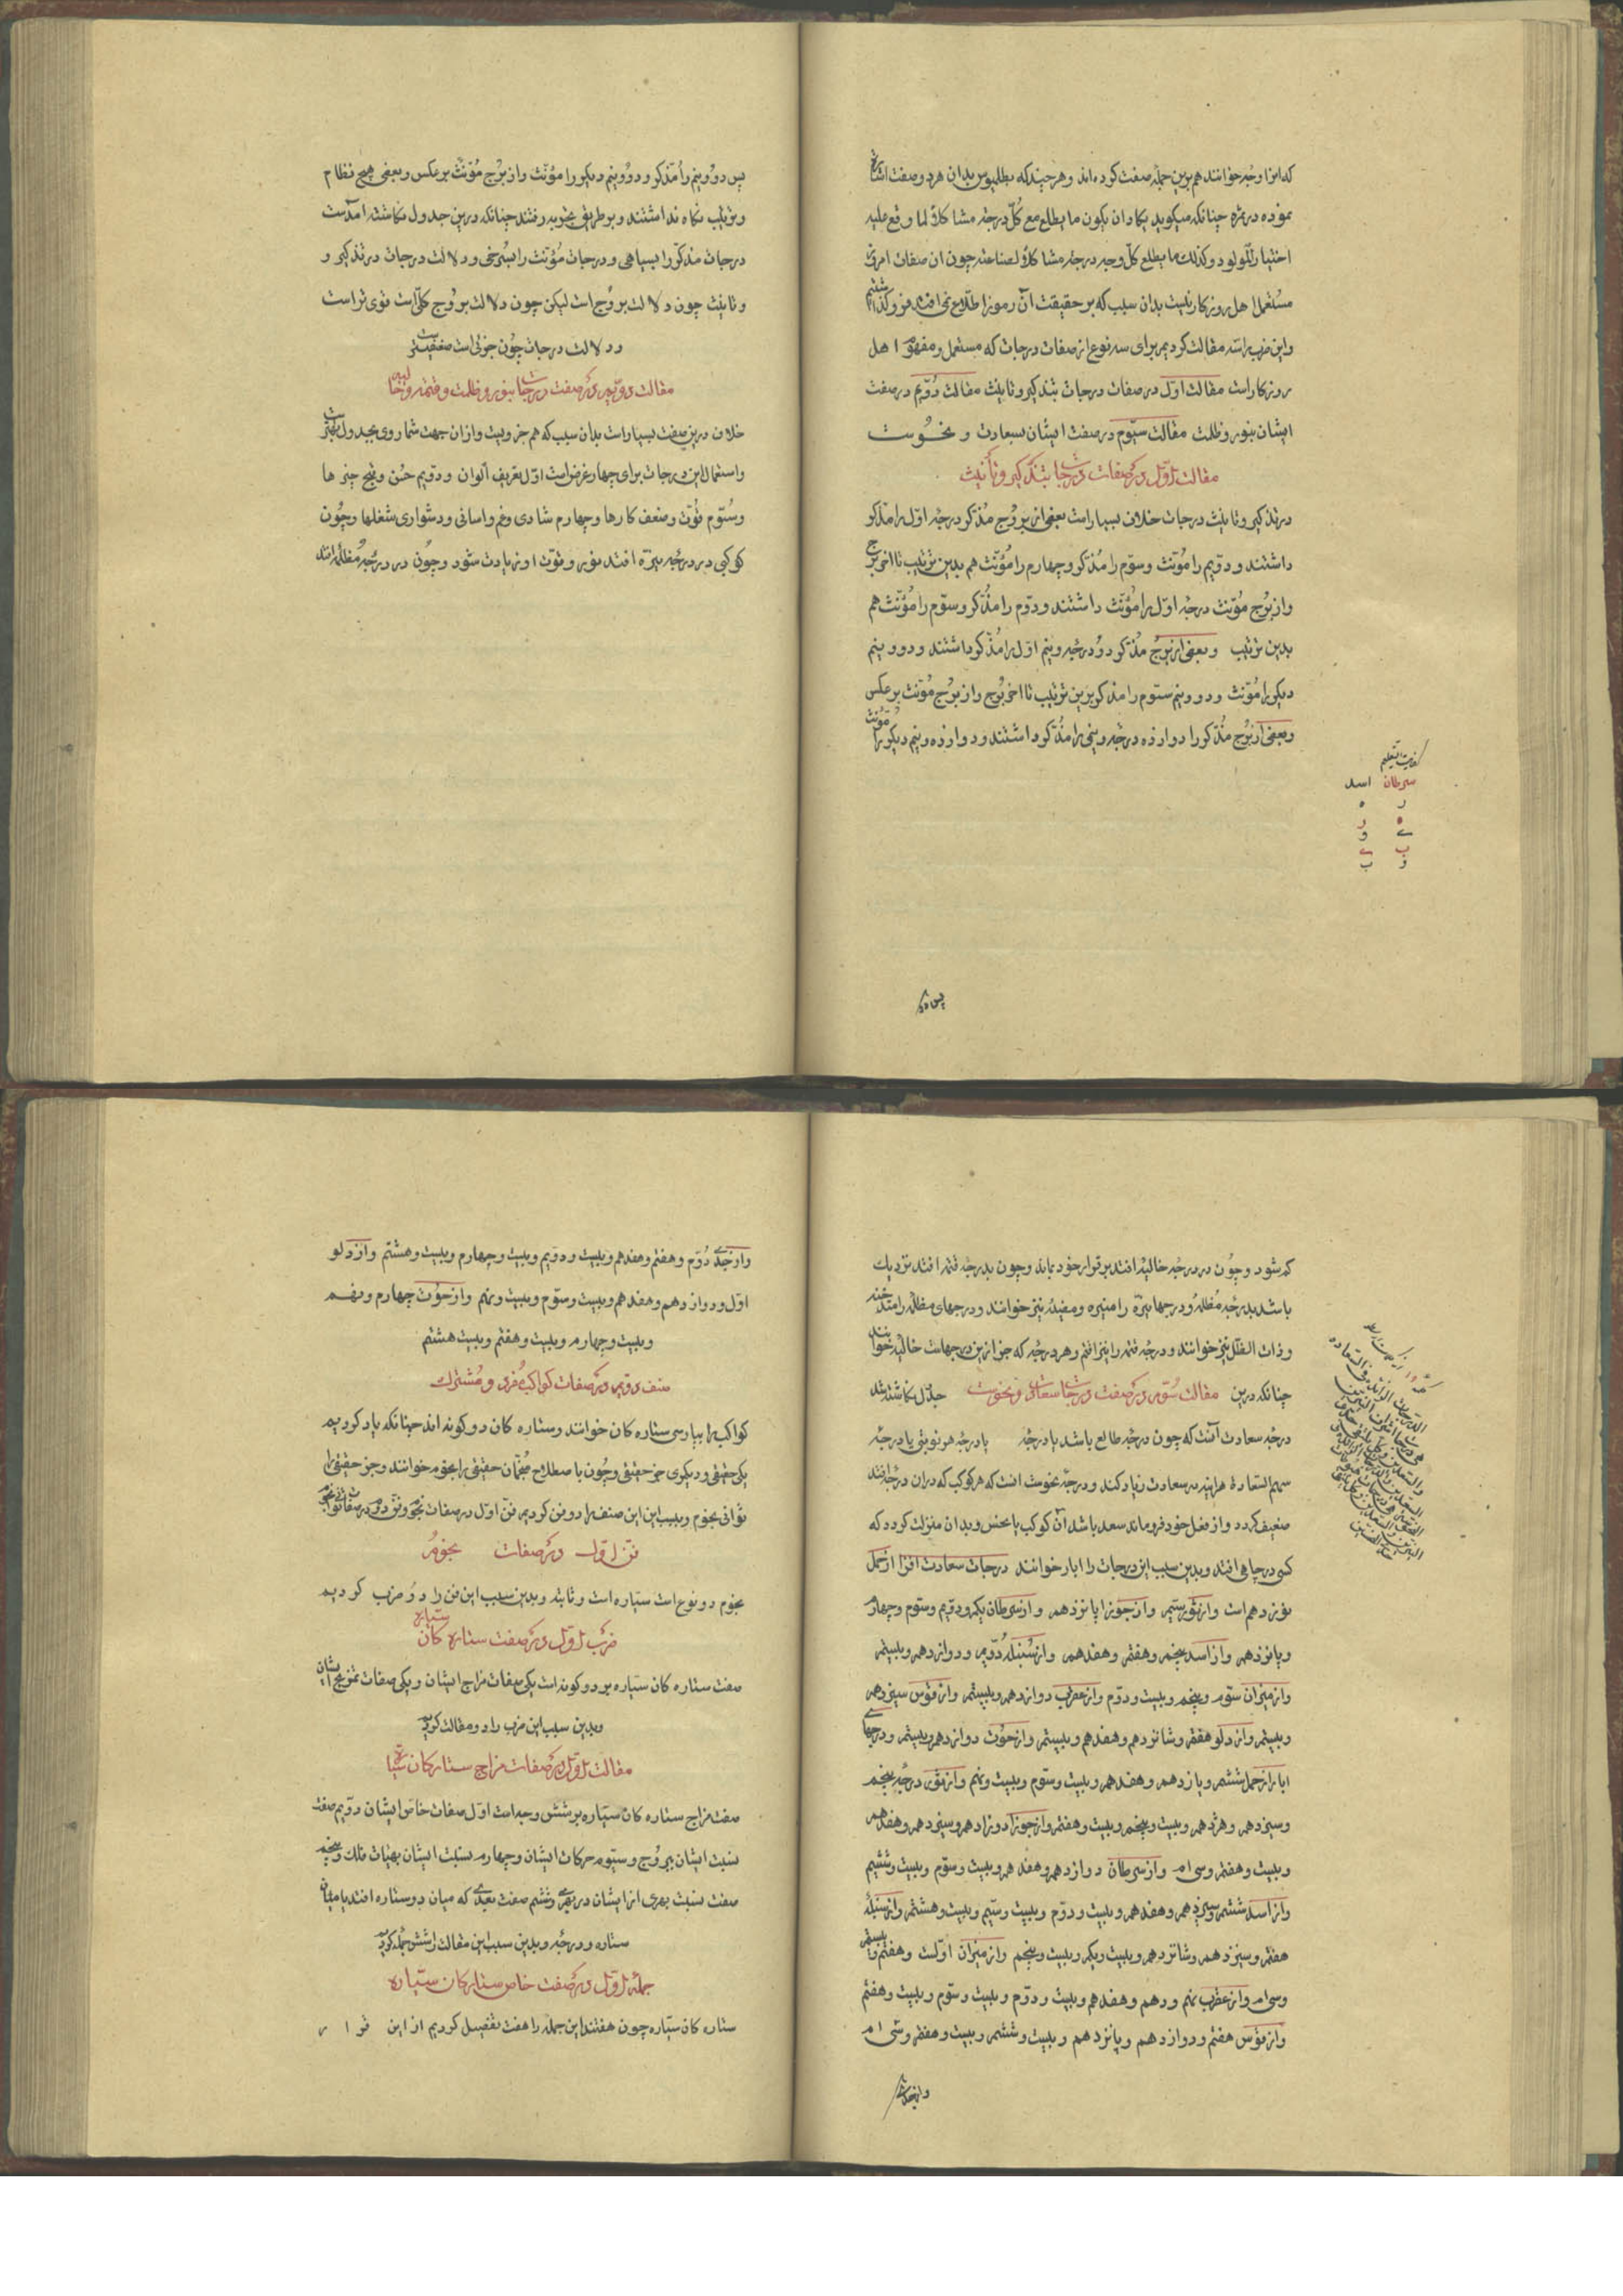 که انرا وجه خوانند هم برین جمله صفت کرده‌اند و هر چند که بطلمیوس بدان هر دو صفت اشارة
نموده در ثمره چنانکه میکوید یکاد ان یکون ما یطلع مع کلّ درجة مشاکلا لما وقع علیه
اختیار المولود و کذلک ما یطلع کلّ وجه درجة مشاکلا لصناعته چون ان صفات
مستعمل اهل روزکار نیست بدان سبب که بر حقیقت آن رموز اطلاع نمی افتد فرو کذاشتیم
و این ضرب را سه مقالت کردیم برای سه نوع از صفات درجات که مستعمل و مفهوم اهل
روزکار است مقالت اوّل در صفات درجات بتذکیر و تانیث مقالت دوّیم در صفت
ایشان بنور و ظلمت مقالت سیّوم در صفت ایشان بسعادت و نحوست
مقالت اوّل در صفات درجات بتذکیر و تأنیث
در تذکیر و تانیث درجات خلاف بسیار است بعضی از بروج مذکر درجه اوّل را مذکر
داشتند و دوّیم را مؤنث و سوّم را مذکر و چهارم را مؤنث هم بدین ترتیب تا اخر برج
و از بروج مؤنث درجه اوّل را مؤنث داشتند و دوّم را مذکر و سوّم را مؤنث هم
بدین ترتیب و بعضی از بروج مذکر دو درجه و نیم اوّل را مذکر داشتند و دو و نیم
دیکر را مؤنث و دو و نیم ستوم را مذکر برین ترتیب تا اخر بروج و از بروج مؤنث بر عکس
و بعضی از بروج مذکر را دوازده درجه و نیمی را مذکر داشتند و دوازده و نیم دیکر را مؤنث
سرطان اسد
پس دو
پس دو و نیم را مذکر و دو و نیم دیکر را مؤنث و از بروج مؤنث بر عکس و بعضی هیچ نظام
و ترتیب نکاه نداشتند و بر طریق تجربه رفتند چنانکه درین جدول نکاشته امدست
درجات مذکر را بسیاهی و درجات مؤنث را بسرخی و دلالت درجات در تذکیر و
و تانیث چون دلالت بروج است لیکن چون دلالت بروج کلّی است قوی تر است
و دلالت درجات چون جزئی است ضعیفتر
مقالت دویم در صفت درجات بنور و ظلمت و قتمه و خالیه
خلاف درین صفت بسیار است بدان سبب که هم جزویست و از ان جهت شمار وی بجدول بهتر
و استعمال این درجات برای چهار غرض است اوّل تعریف الوان و دویم حسن و قبح چیزها
و سیّوم قوّت و ضعف کارها و چهارم شادی و غم و اسانی و دشواری شغلها و چون
کوکبی در درجه نیّره افتد نور و قوّت او زیادت شود و چون در درجه مظلمه افتد
کم شود و چون در درجه خالیه افتد بر قرار خود بماند و چون بدرجه قتمه افتد نزدیک
باشد بدرجه مظلمه و درجهای نیّره را منیره و مضیئه نیز خوانند و درجهای مظلمه را
و ذات الظل نیز خوانند و درجه قتمه را نیز اقتم و هر درجه که جز ازین درجهاست خالیه خوانند
چنانکه درین جدول نکاشته شد
مقالت سوم در صفت درجات سعادت و نحوست
درجه سعادت آنست که چون درجه طالع باشد یا درجه یا درجه هر نوبتی یا درجه
سهم السعادة هراینه در سعادت زیاد کند و درجه نحوست انست که هر کوکب که دران درجه افتد
ضعیف کردد و از فعل خود فرو ماند سعد باشد آن کوکب یا نحس و بدان منزلت کردد که
کسی در چاهی افتد و بدین سبب این درجات را ابار خوانند درجات سعادت افزا از حمل
نوزدهم است و از ثور سیّم و از جوزا پانزدهم و از سرطان یکم و دویم و سوم و چهارم
و پانزدهم و از اسد پنجم و هفتم و هفدهم و از سنبله دوّیم و دوازدهم و بیستم
و از میزان سوّم و پنجم و بیست و دوّم و از عقرب دوازدهم و بیستم و از قوس سیزدهم
و بیستم و از دلو هفتم و شانزدهم و هفدهم و بیستم و از حوت دوازدهم و بیستم و درجهای
ابار از حمل ششم و یازدهم و هفدهم و بیست و سوّم و بیست و نهم و از ثور درجه پنجم
و سیزدهم و هژدهم و بیست و پنجم و بیست و هفتم و از جوزا دوازدهم و سیزدهم و هفدهم
و بیست و هفتم و سی ام و از سرطان دوازدهم و هفدهم و بیست و سوّم و بیست و ششم
و از اسد ششم و سیزدهم و هفدهم و بیست و دوّم و بیست و سیّم و بیست و هشتم و از سنبله
هفتم و سیزدهم و شانزدهم و بیست و یکم و بیست و پنجم و از میزان اوّلست و هفتم و بیستم
و سی ام و از عقرب نهم و دهم و هفدهم و بیست و دوّم و بیست و سوّم و بیست و هفتم
و از قوس هفتم و دوازدهم و پانزدهم و بیست و ششم و بیست و هفتم و سی ام
و از جدی
و از جدی دوّم و هفتم و هفدهم و بیست و دویم و بیست و چهارم و بیست و هشتم و از دلو
اوّل و دوازدهم و هفدهم و بیست و سوّم و بیست و نهم و از حوت چهارم و نهم
و بیست و چهارم و بیست و هفتم و بیست هشتم
صنف دویم در صفات کواکب مفرد و مشترک
کواکب را بپارسی ستاره کان خوانند و ستاره کان دو کونه اند چنانکه یاد کردیم
یکی حقیقی و دیکری جز حقیقی و چون باصطلاح منجمان حقیقی را نجوم خوانند و جز حقیقی را
ثوانی نجوم و بسبب این این صنف را دو فن کردیم فنّ اوّل در صفات نجوم و فنّ دوم در صفات ثوانی نجوم
فنّ اوّل در صفات نجوم
نجوم دو نوع است سیّاره است و ثابته و بدین سبب این فن را دو ضرب کردیم
ضرب اوّل در صفت ستاره کان سیاره
صفت ستاره کان سیّاره بر دو کونه است یکی صفات مزاج ایشان و یکی صفات تمزیج ایشان
و بدین سبب این ضرب را دو مقالت کردیم
مقالت اوّل در صفات مزاج ستارکان سیاره
صفت مزاج ستاره کان سیّاره بر شش وجه است اوّل صفات خاص ایشان دوّیم صفت
نسبت ایشان ببروج و سیّوم حرکات ایشان و چهارم نسبت ایشان بهیات فلک و پنجم
صفت نسبت بهری از ایشان در بهری و ششم صفت بعدی که میان دو ستاره افتد یا میان
ستاره و درجه و بدین سبب این مقالت را شش جمله کردیم
جمله اوّل در صفت خاص ستارکان سیّاره
ستاره کان سیّاره چون هفتند این جمله را هفت تفصیل کردیم از این قرار